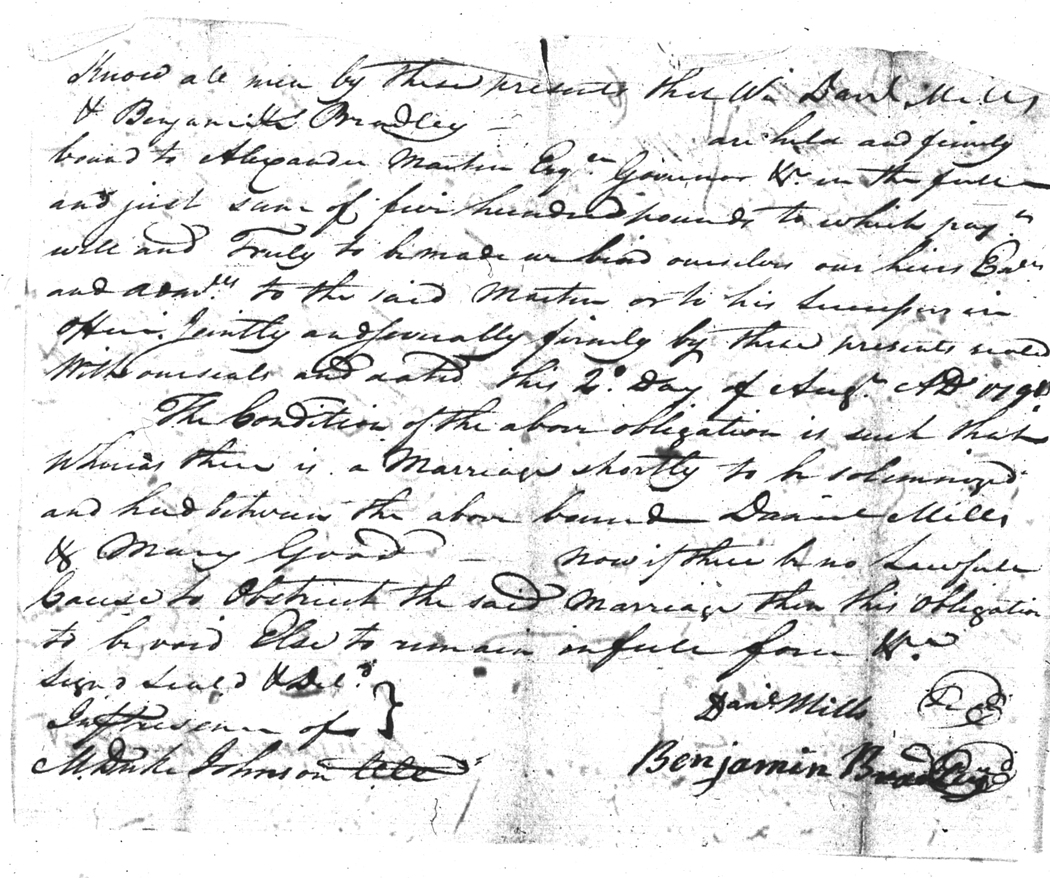 Know all men by these presents that We Danl. Mills
& Benjamin Bradley — are held and firmly
bound to Alexander Martin Esqr. Governor &c. in the full
and just sum of five hundred pounds to which paymt.
well and Truly to be made we bind ourselves our heirs Exrs
and admrs. to the said Martin or to his Successors in
Office Jointly and severally firmly by these presents seald
With our seals and dated this 2d. Day of Augt. AD 179
The Condition of the above obligation is such that
whereas there is a Marriage shortly to be solemnized
and had between the above bound Daniel Mills
& Mary Good — now if there be no Lawfull
Cause to Obstruct the said Marriage then this Obligation
to be void Else to remain in full force &c.
Signd Seald & Deld.
In Presence of
M. Duke Johnson
Danl. Mills Seal
Benjamin Bradley Seal